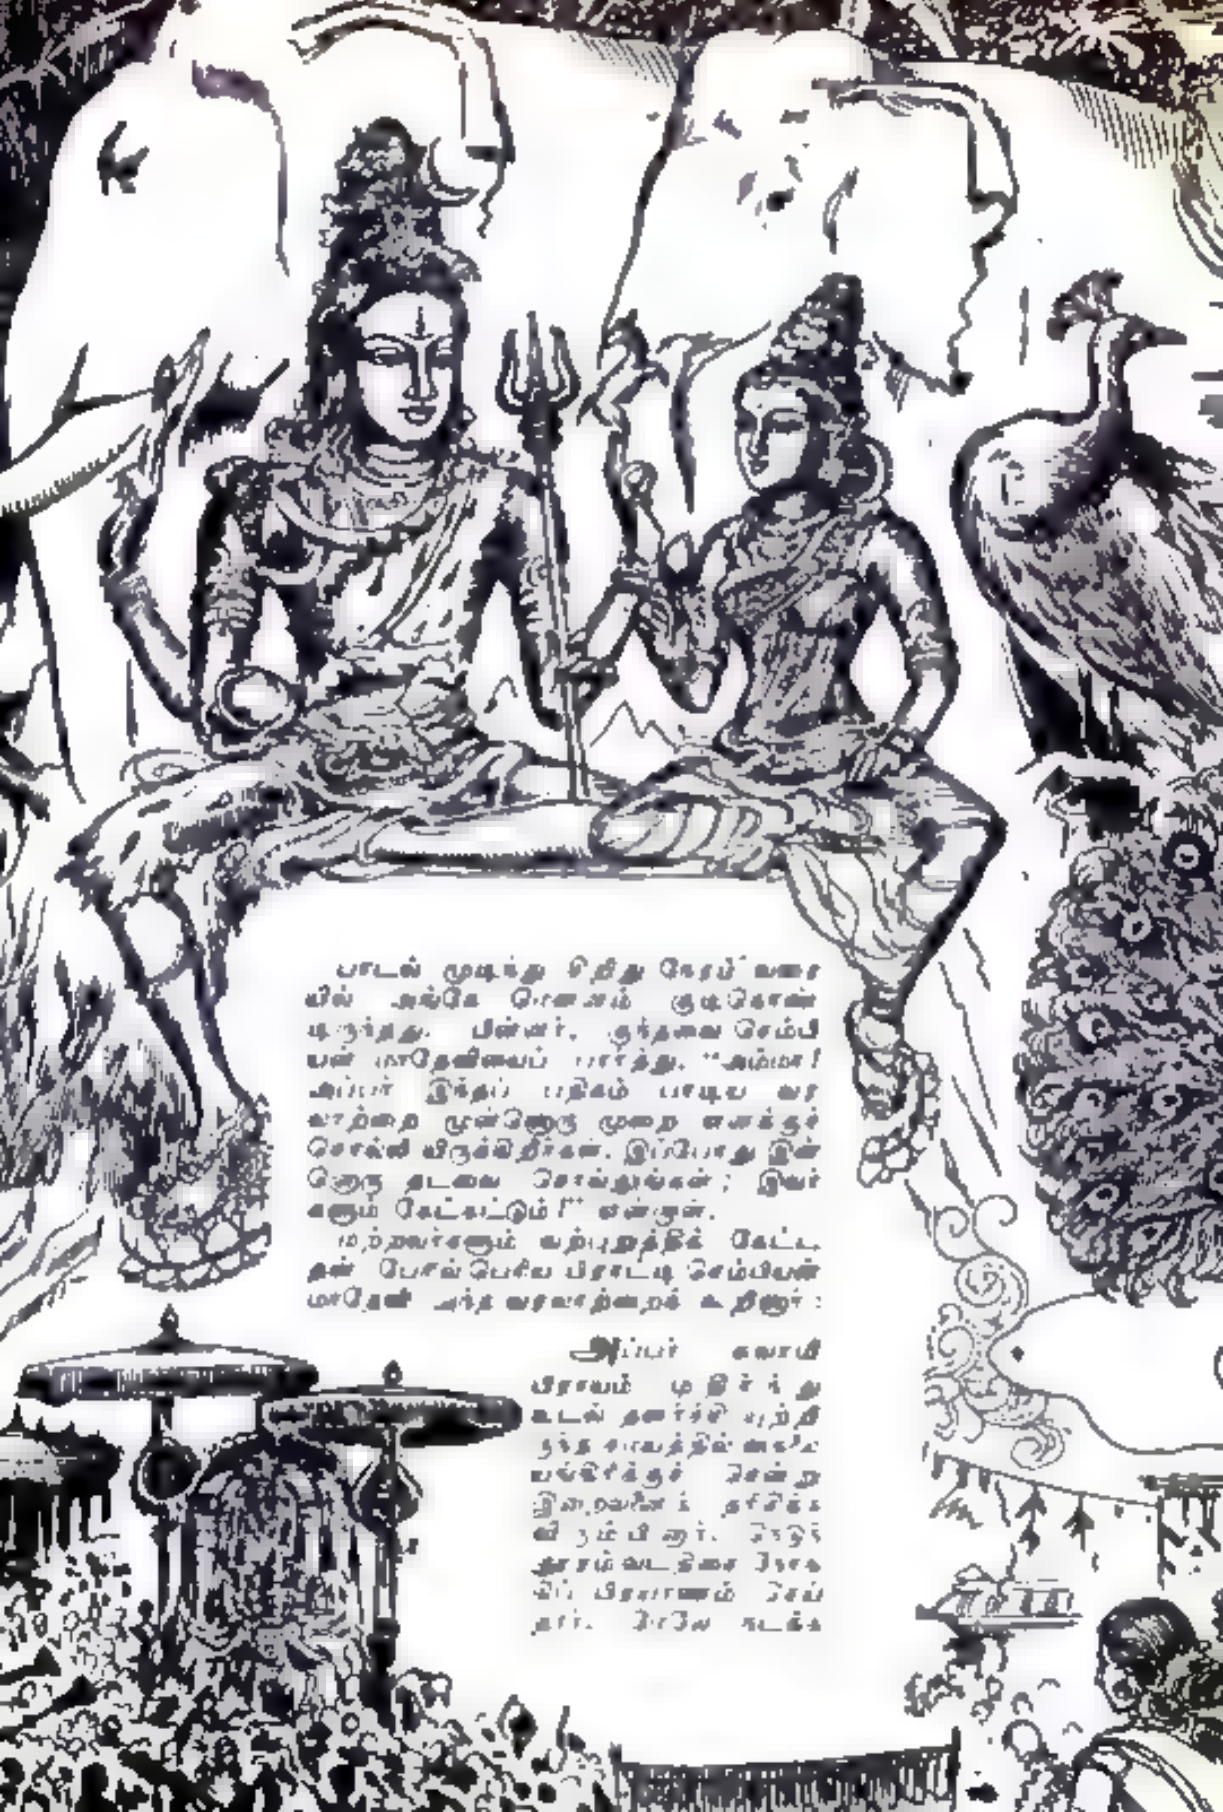 பாடல் முடிந்து சிறிது நேரம் வரை
யில் அங்கே மௌனம் குடிகொண்
டிருந்தது. பின்னர், குந்தவை செம்பி
யன் மாதேவியைப் பார்த்து, "அம்மா!
அப்பர் இந்தப் பதிகம் பாடிய வர
லாற்றை முன்னொரு முறை எனக்குச்
சொல்லி யிருக்கிறீர்கள். இப்போது இன்
னொரு தடவை சொல்லுங்கள்; இவர்
களும் கேட்கட்டும்!" என்றாள்.
மற்றவர்களும் வற்புறுத்திக் கேட்ட
தன் பேரில் பெரிய பிராட்டி செம்பியன்
மாதேவி அந்த வரலாற்றைக் கூறினார்:
அப்பர் சுவாமி
பிராயம் முதிர்ந்து
உடல் தளர்ச்சி யுற்றி
ருந்த சமயத்தில் கைலை
யங்கிரிக்குச் சென்று
இறைவனைத் தரிசிக்க
விரும்பினார். நெடுந்
தூரம் வட திசை நோக்
கிப் பிரயாணம் செய்
தார். மேலே நடக்க